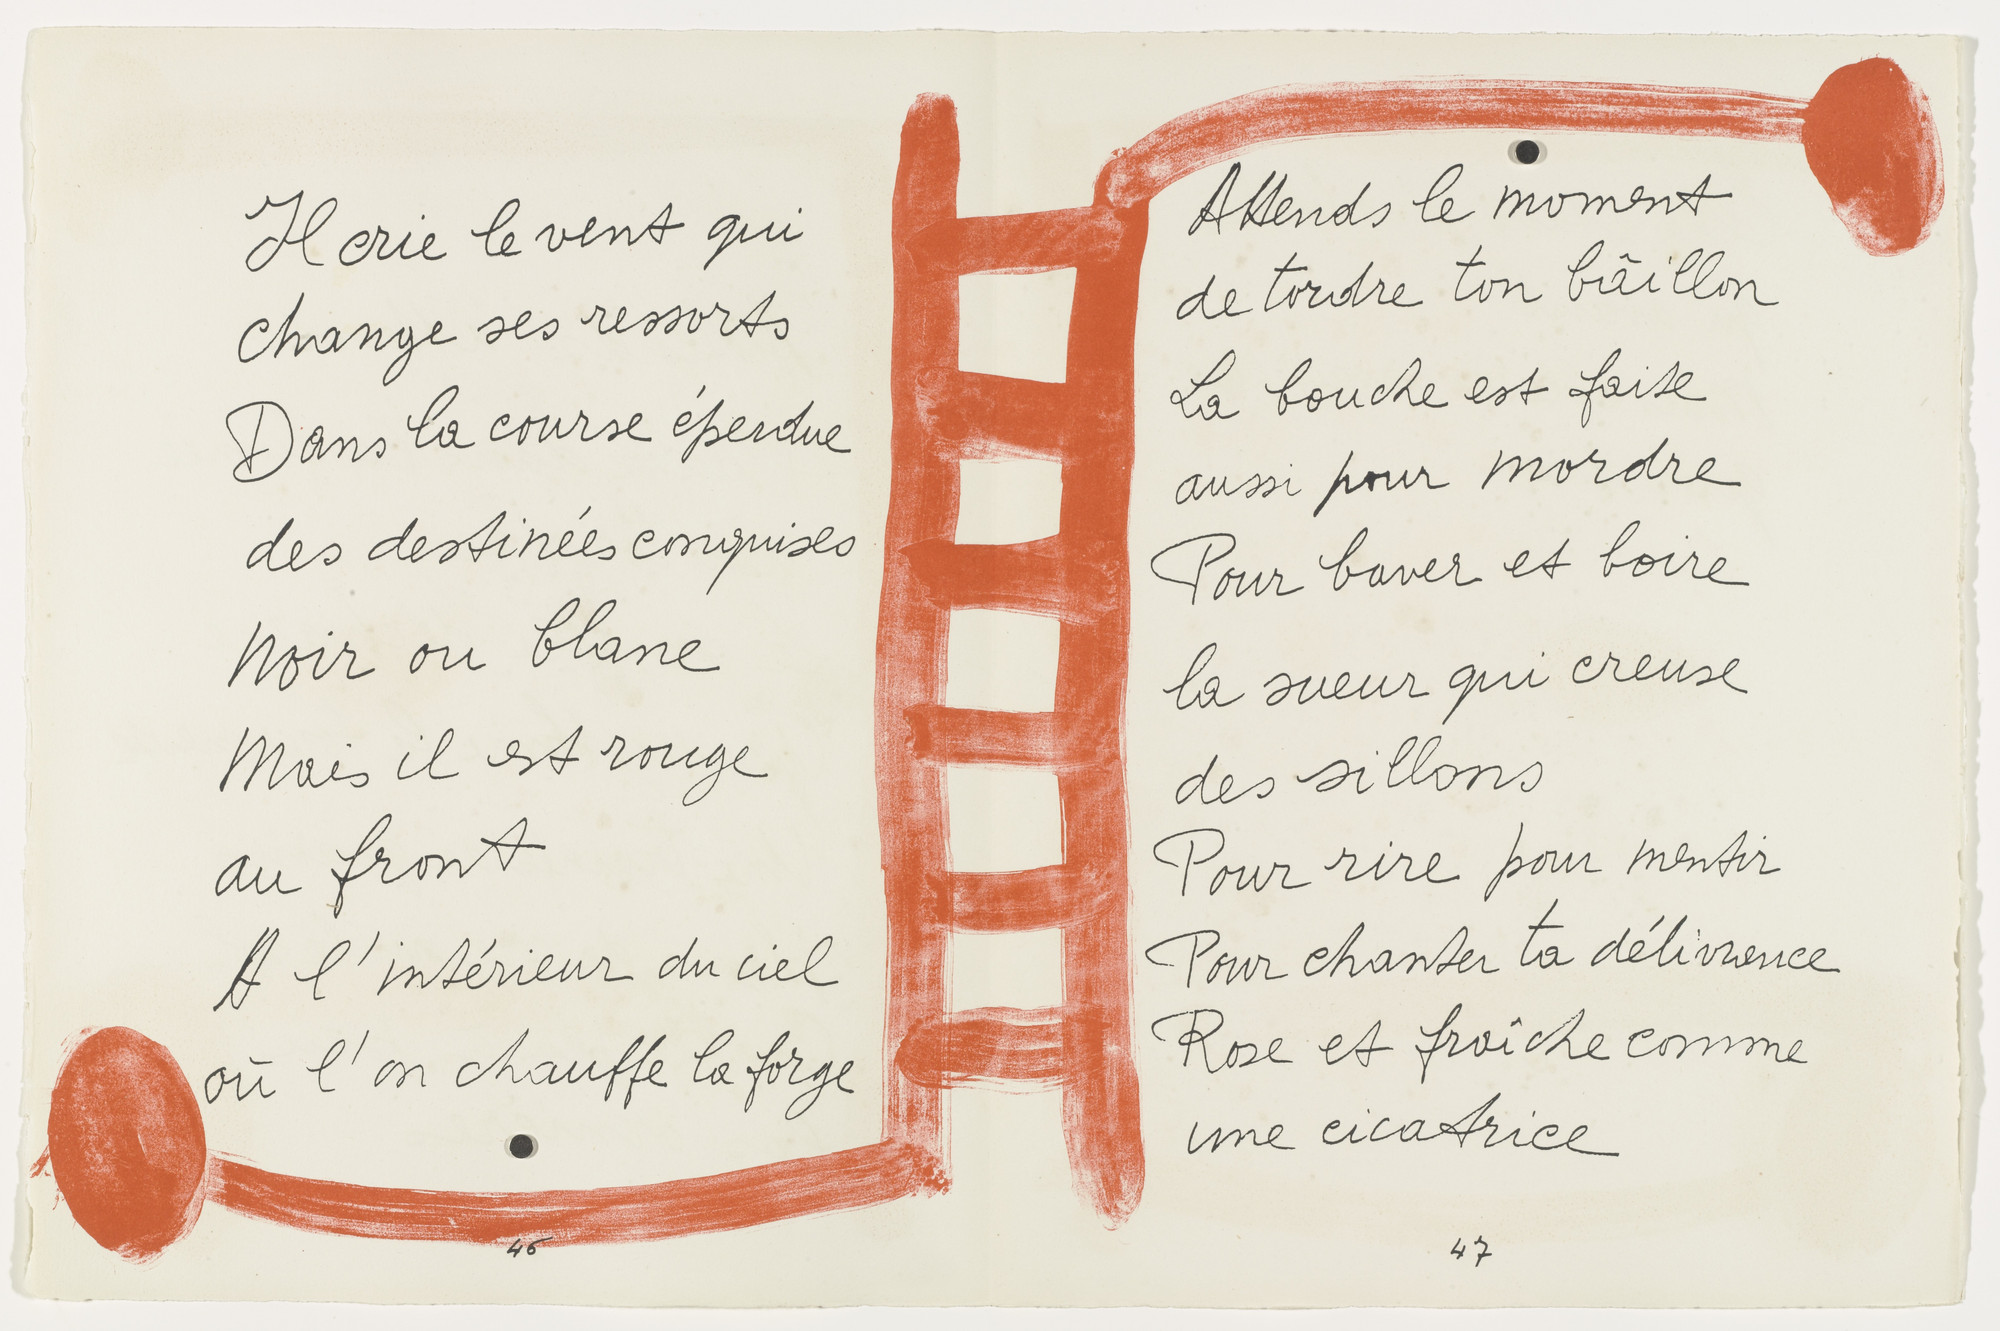 Il crie le vent qui
change ses ressorts
Dans la course éperdue
des destinées conquises
Noir ou blanc
Mais il est rouge
au front
A l'intérieur du ciel
où l'on chauffe la forge
46
Attends le moment
de tordre ton bâillon
La bouche est faite
aussi pour mordre
Pour baver et boire
la sueur qui creuse
des sillons
Pour rire pour mentir
Pour chanter ta délivrance
Rose et fraîche comme
une cicatrice
47